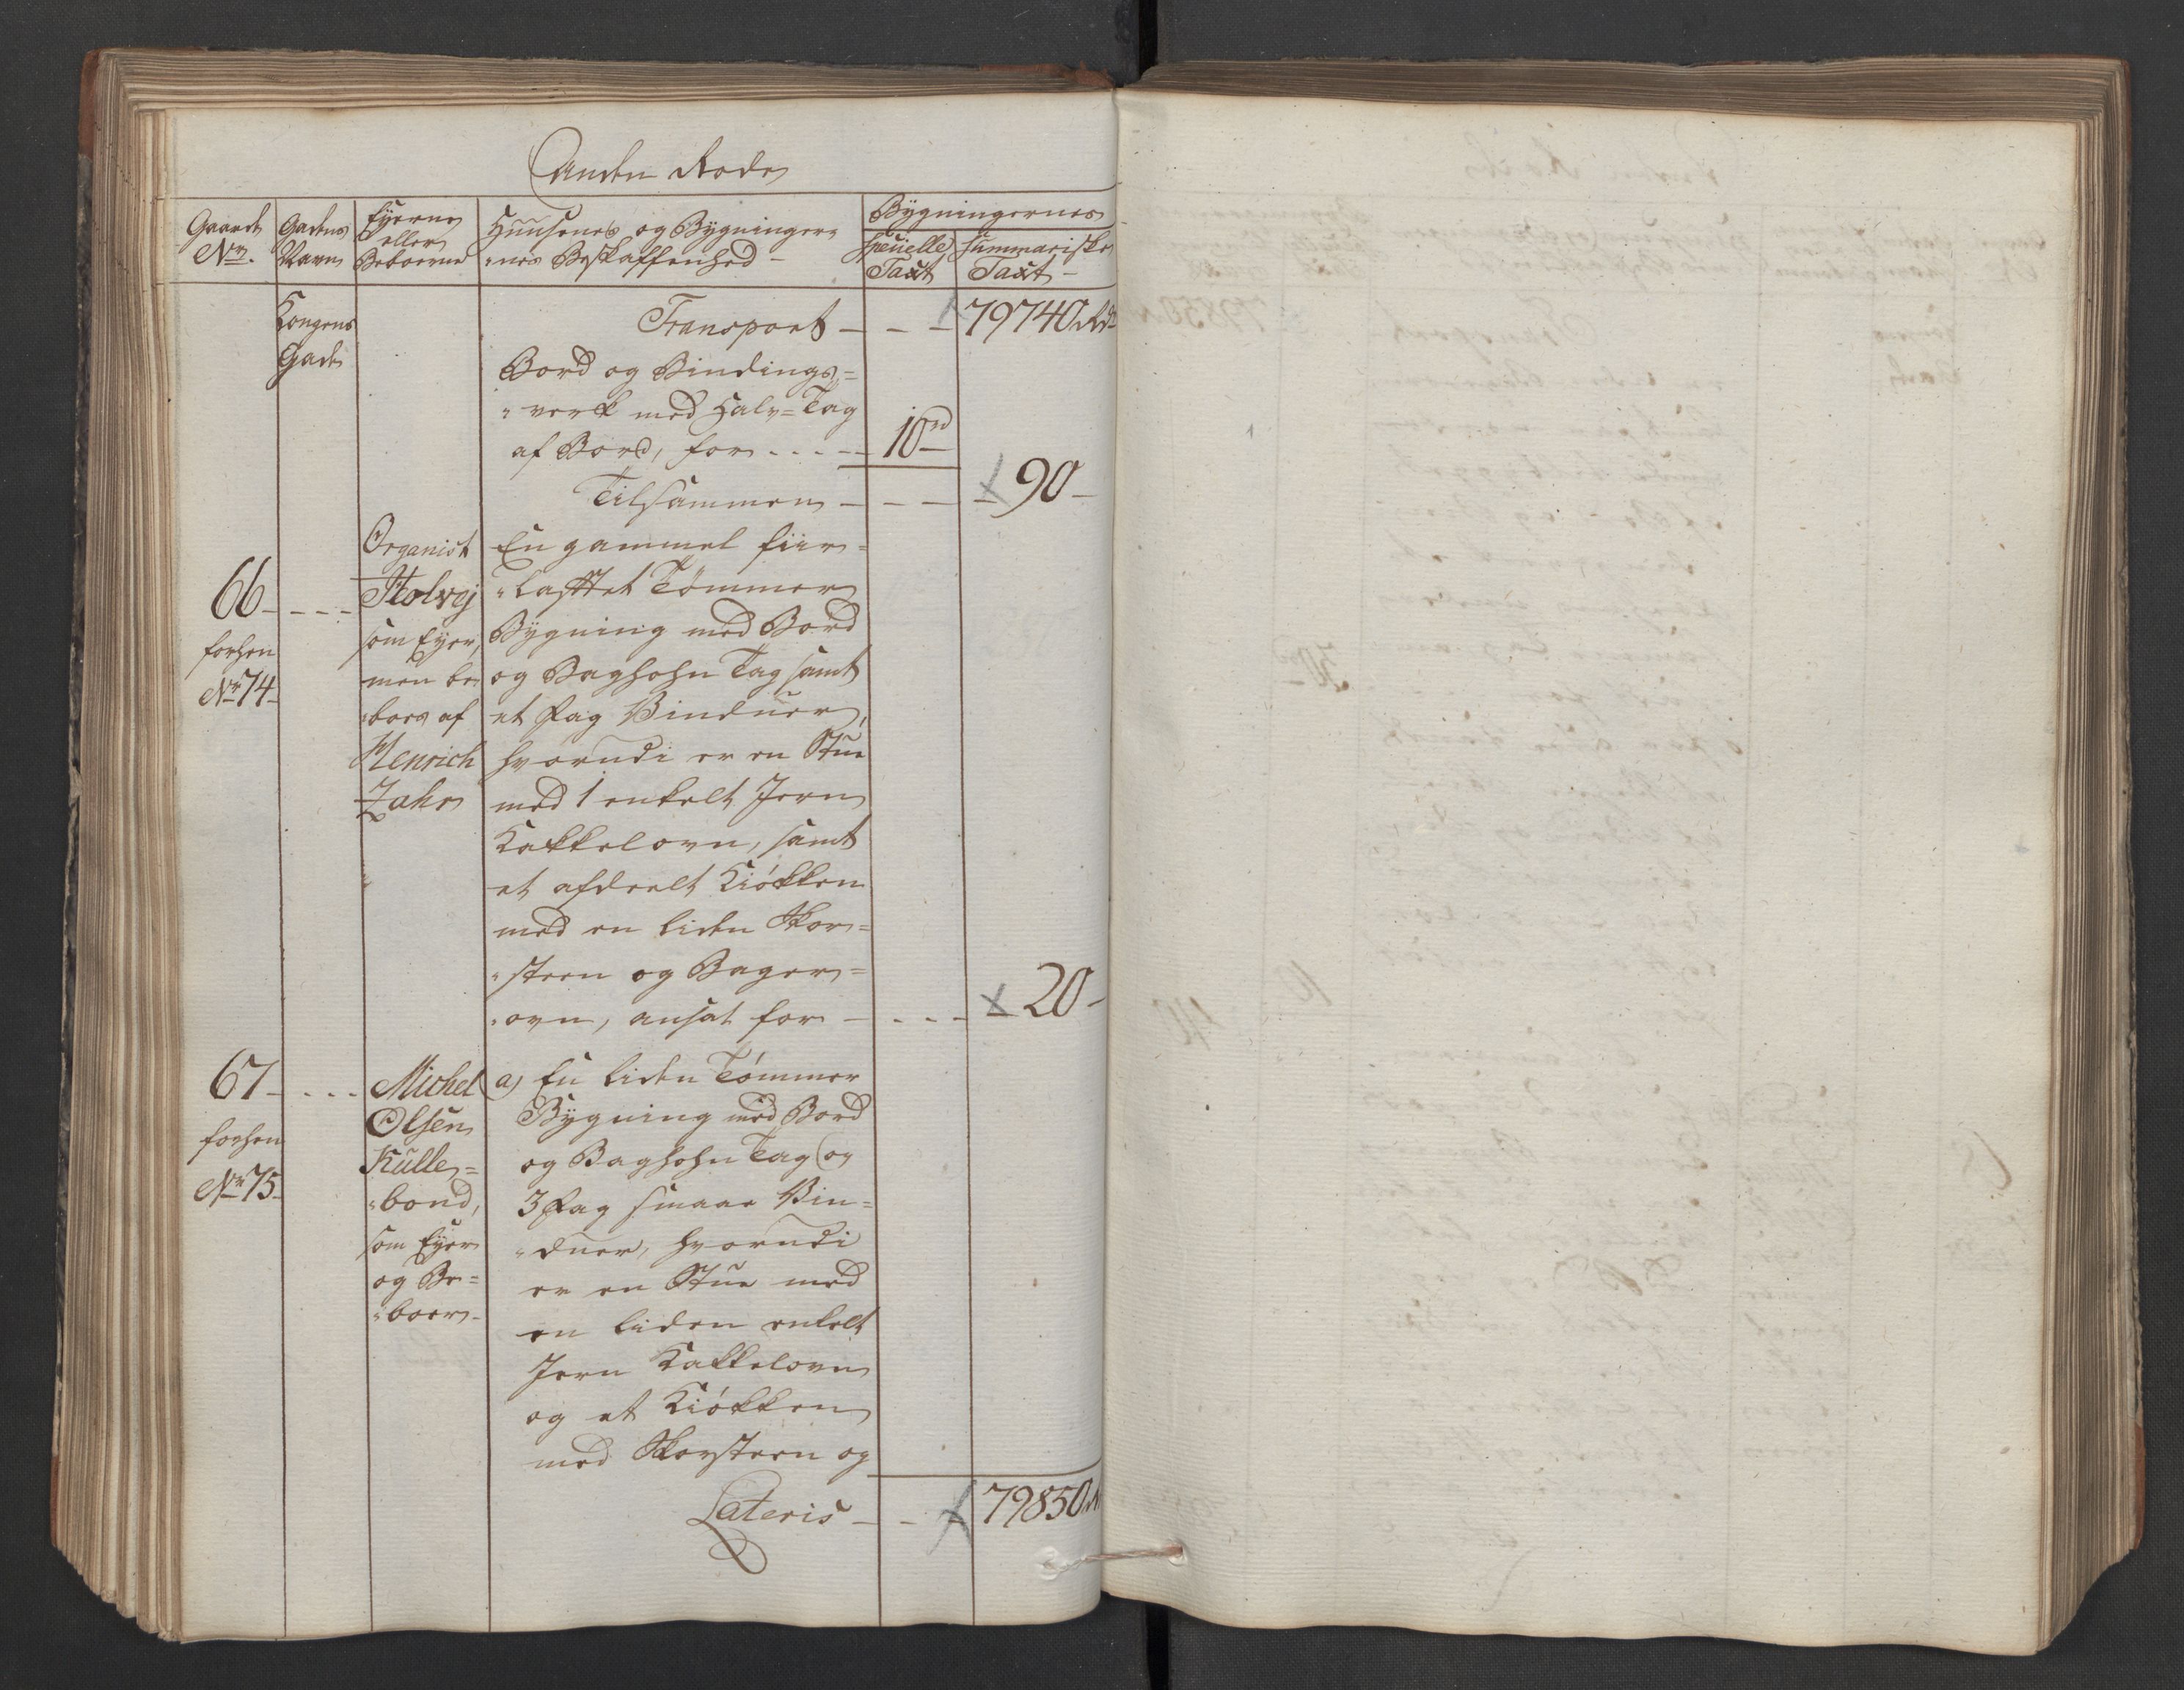 Anden Rode
Gaards No. Gadens Navn Eyerne eller Beboerne Huusenes og Bygninger= =nes Beskaffenhed - Bygningernes Specielle Taxt Summariske Taxt -
Kongens Gade Transport - - - 79740 Rdr
Bord og Bindings=
=verk med Halv=Tag
af Bord, for . . . - - 10 rd
Tilsammen - - - - 90 -
66 - - - - Organist Stolvej En gammel fiir=
forhen =lafttet Tømmer
No 74 - som Eyer, Bygning med Bord
men be= og Baghohn Tag samt
=boes af et Fag Vinduer,
Henrich hvorudi er en Stue
Zahr med 1 enkelt Jern
Kakkelovn, samt
et afdeelt Kiøkken
med en liden Skor=
=steen og Bager=
=ovn, ansat for - - - - 20 -
67 - . . . Michel a) En liden Tømmer
Olsen Bygning med Bord
forhen Kulle= og Baghohn Tag og
No 75 - =bond, 3 Fag smaae Vin=
som Eyer =duer, hvorudi
og Be= er en Stue med
=boer - en liden enkelt
Jern Kakkelovn
og et Kiøkken
med Skorsteen og
Lateris - - - 79850